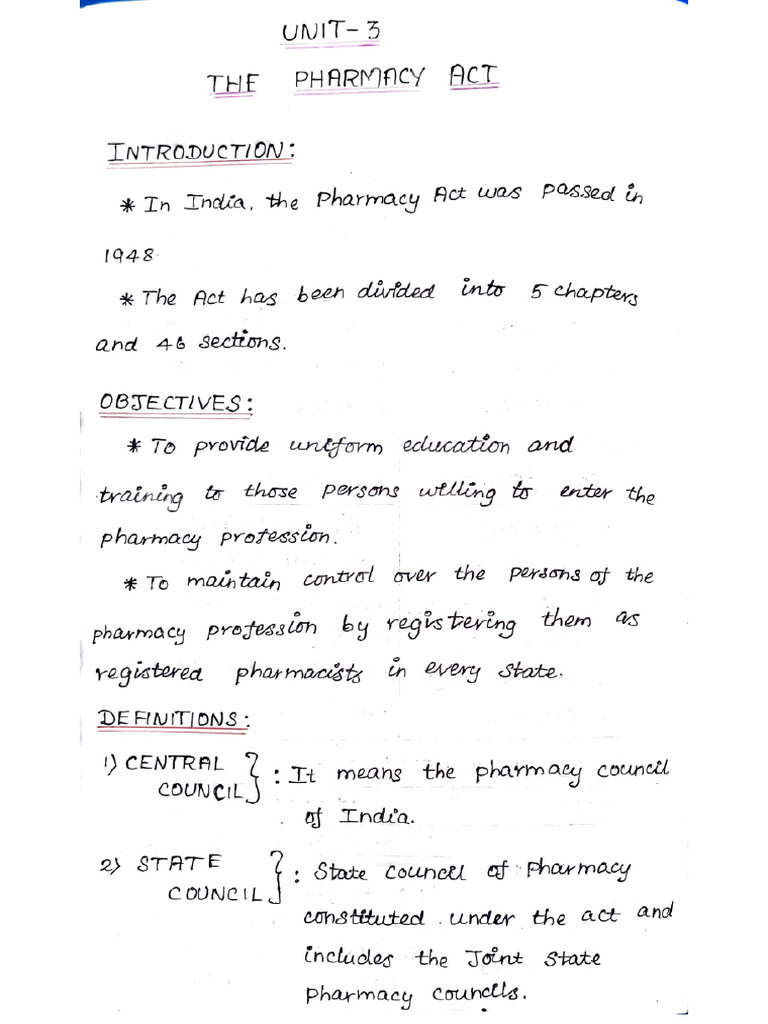 UNIT-3
THE PHARMACY ACT
INTRODUCTION:
* In India, the Pharmacy Act was passed in
1948.
* The Act has been divided into 5 chapters
and 46 sections.
OBJECTIVES:
* To provide uniform education and
training to those persons willing to enter the
pharmacy profession.
* To maintain control over the persons of the
pharmacy profession by registering them as
registered pharmacists in every state.
DEFINITIONS:
1) CENTRAL COUNCIL } : It means the pharmacy council
of India.
2) STATE COUNCIL } : State council of pharmacy
constituted under the act and
includes the Joint State
pharmacy councils.